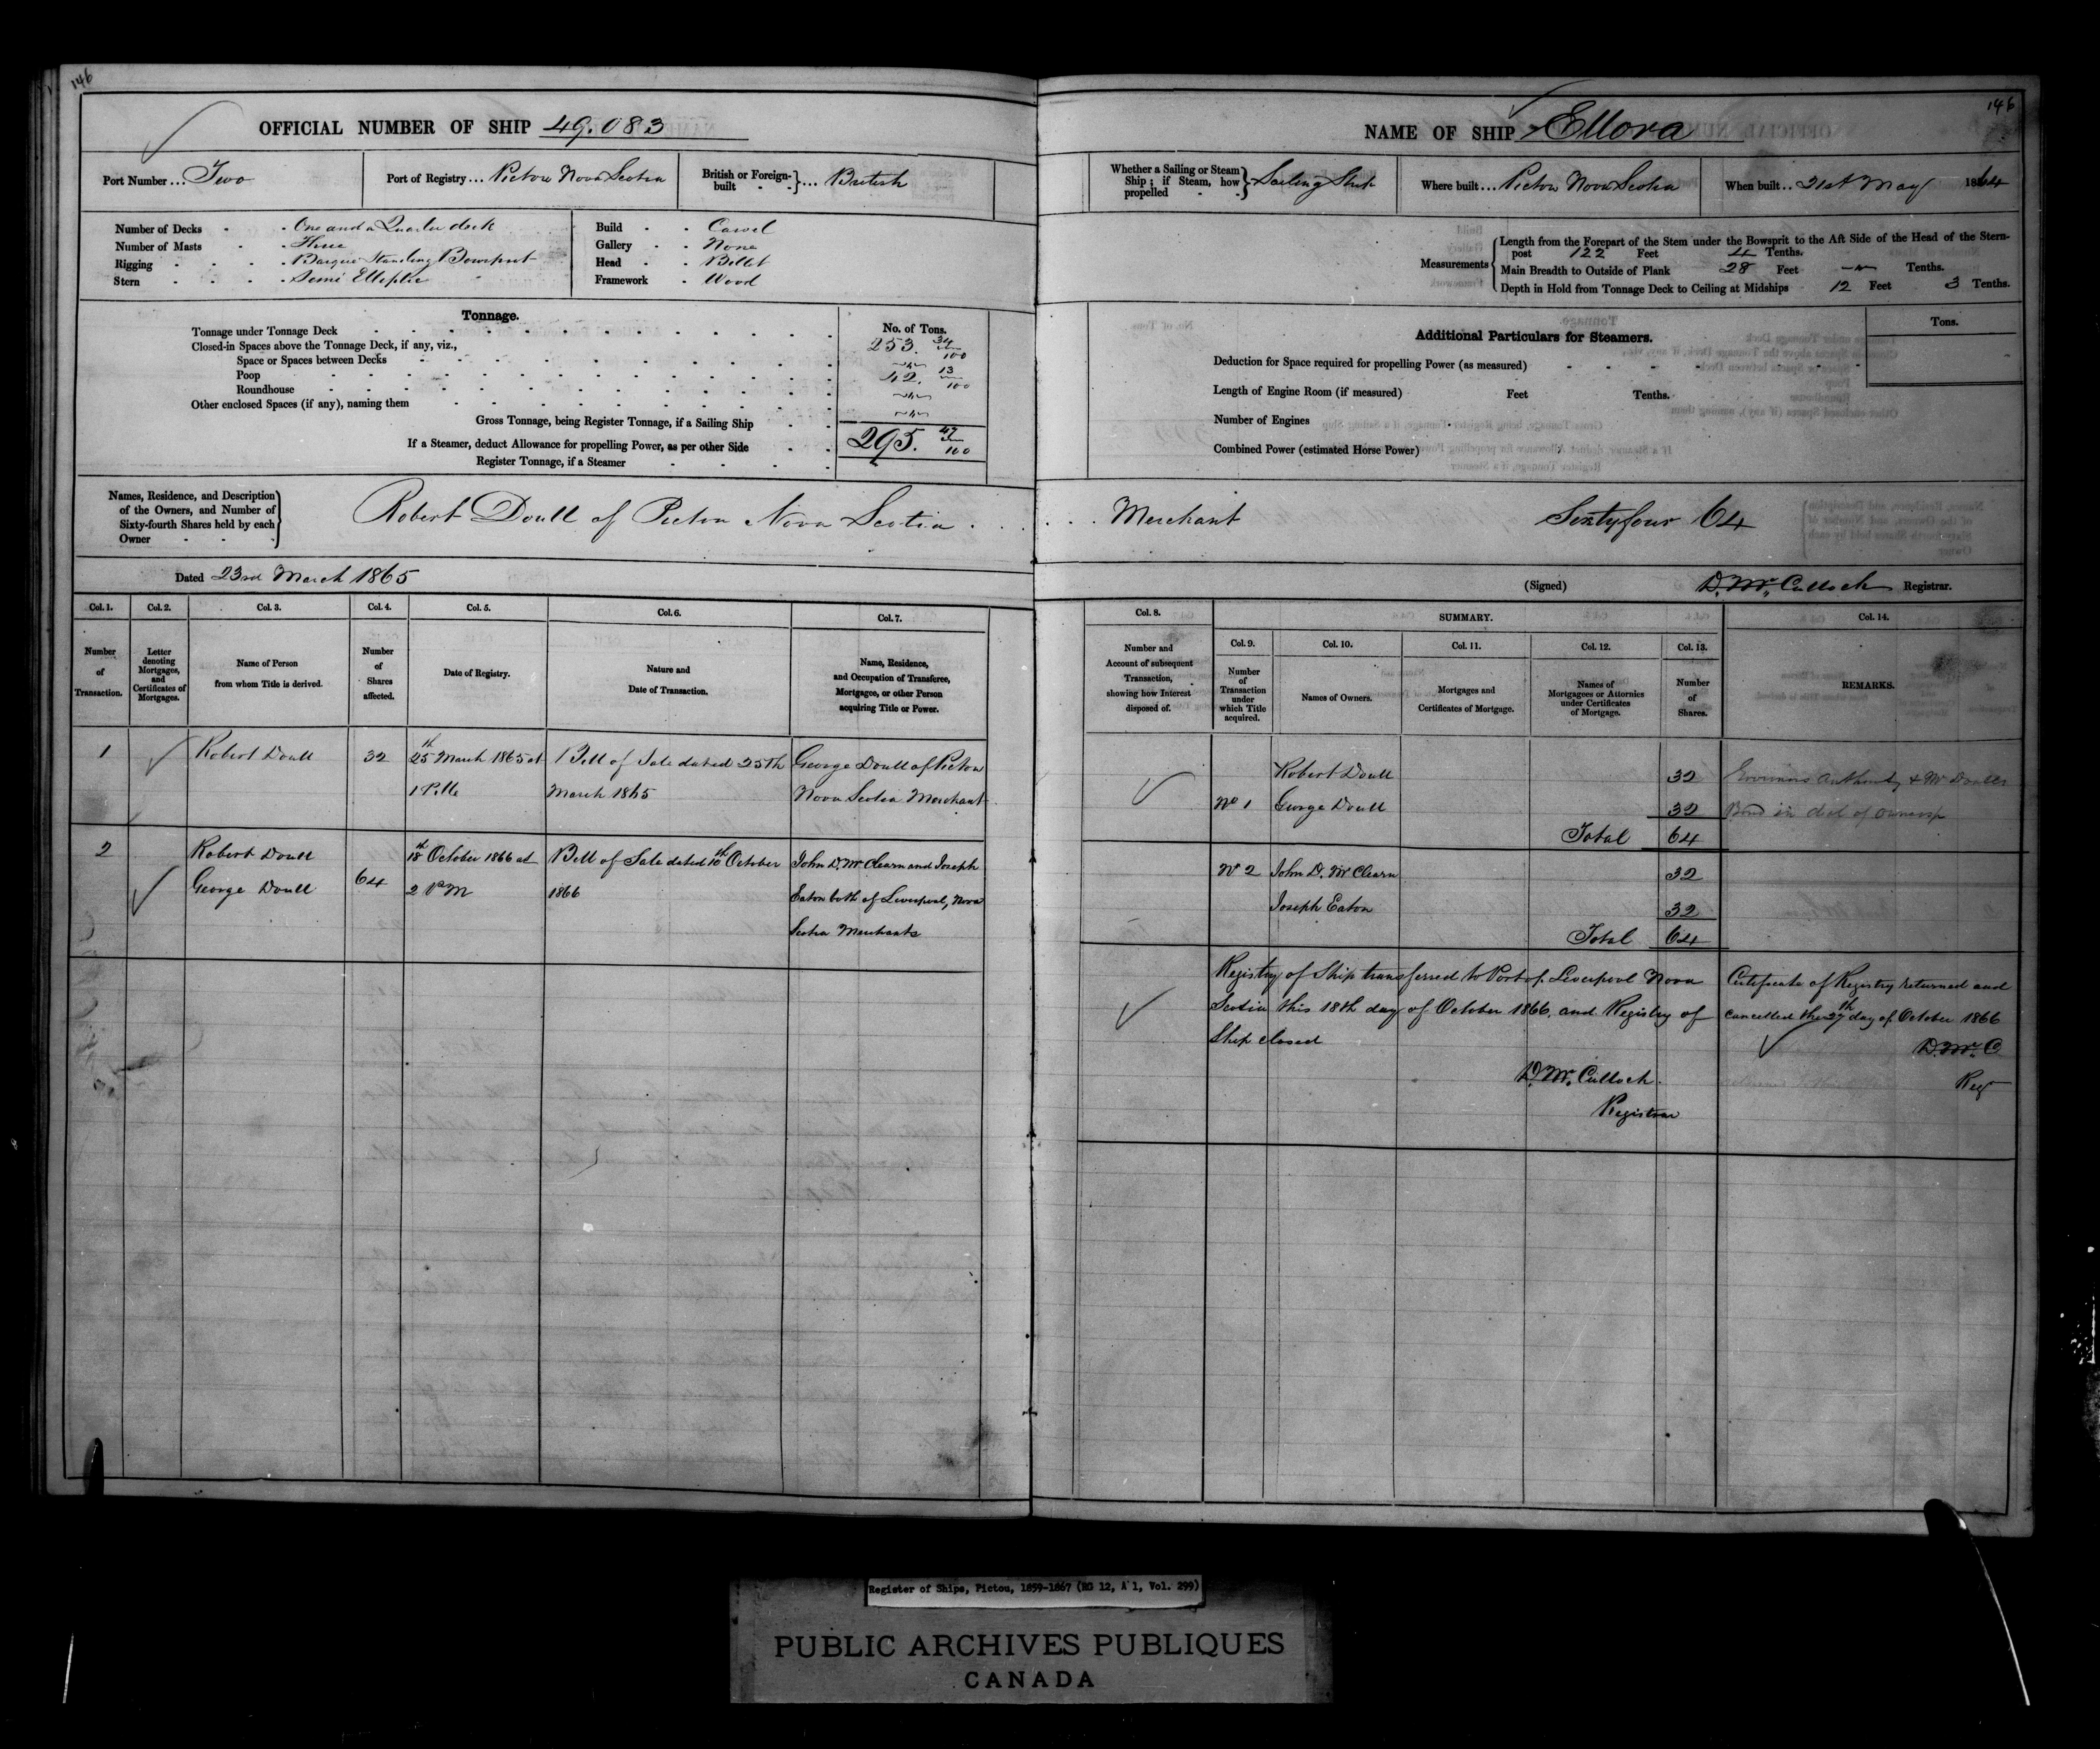 146
OFFICIAL NUMBER OF SHIP 49.083
Port Number... Two
Port of Registry... Pictou Nova Scotia
British or Foreign-built }... British
Number of Decks - One and a Quarter deck
Number of Masts - Three
Rigging - Barque Standing Bowsprit
Stern - Semi Elleptic
Build - Carvel
Gallery - None
Head - Billet
Framework - Wood
Tonnage.
No. of Tons.
Tonnage under Tonnage Deck 253. 34/100
Closed-in Spaces above the Tonnage Deck, if any, viz.,
Space or Spaces between Decks
Poop 42. 13/100
Roundhouse
Other enclosed Spaces (if any), naming them
Gross Tonnage, being Register Tonnage, if a Sailing Ship 295. 47/100
If a Steamer, deduct Allowance for propelling Power, as per other Side
Register Tonnage, if a Steamer
Names, Residence, and Description
of the Owners, and Number of
Sixty-fourth Shares held by each
Owner
Robert Doull of Pictou Nova Scotia
Dated 23rd March 1865
Col. 1. Col. 2. Col. 3. Col. 4. Col. 5. Col. 6. Col. 7.
Number of Transaction.
Letter denoting Mortgages, and Certificates of Mortgages.
Name of Person from whom Title is derived.
Number of Shares affected.
Date of Registry.
Nature and Date of Transaction.
Name, Residence, and Occupation of Transferee, Mortgagee, or other Person acquiring Title or Power.
1 Robert Doull 32 25th March 1865 at Bill of Sale dated 25th George Doull of Pictou
March 1865 Nova Scotia Merchant
2 Robert Doull 18th October 1866 at Bill of Sale dated 10th October John D. McClearn and Joseph
George Doull 64 2 PM 1866 Eaton both of Liverpool, Nova
Scotia Merchants
146
NAME OF SHIP Ellora
Whether a Sailing or Steam Ship; if Steam, how propelled } Sailing Ship
Where built... Pictou Nova Scotia
When built.. 21st May 1864
Measurements
Length from the Forepart of the Stem under the Bowsprit to the Aft Side of the Head of the Stern-
post 122 Feet 4 Tenths.
Main Breadth to Outside of Plank 28 Feet Tenths.
Depth in Hold from Tonnage Deck to Ceiling at Midships 12 Feet 3 Tenths.
Additional Particulars for Steamers.
Tons.
Deduction for Space required for propelling Power (as measured)
Length of Engine Room (if measured) Feet Tenths.
Number of Engines
Combined Power (estimated Horse Power)
Merchant Sixtyfour 64
(Signed) D. McCulloch Registrar.
Col. 8. SUMMARY. Col. 14.
Col. 9. Col. 10. Col. 11. Col. 12. Col. 13.
Number and Account of subsequent Transaction, showing how Interest disposed of.
Number of Transaction under which Title acquired.
Names of Owners.
Mortgages and Certificates of Mortgage.
Names of Mortgagees or Attornies under Certificates of Mortgage.
Number of Shares.
REMARKS.
Robert Doull 32
No 1 George Doull 32
Total 64
No 2 John D. McClearn 32
Joseph Eaton 32
Total 64
Registry of Ship transferred to Port of Liverpool Nova
Scotia this 18th day of October 1866. and Registry of
Ship closed
D. McCulloch.
Registrar
Certificate of Registry returned and
cancelled the 27th day of October 1866
D. McC
Reg
Register of Ships, Pictou, 1859-1867 (RG 12, A 1, Vol. 299)
PUBLIC ARCHIVES PUBLIQUES
CANADA